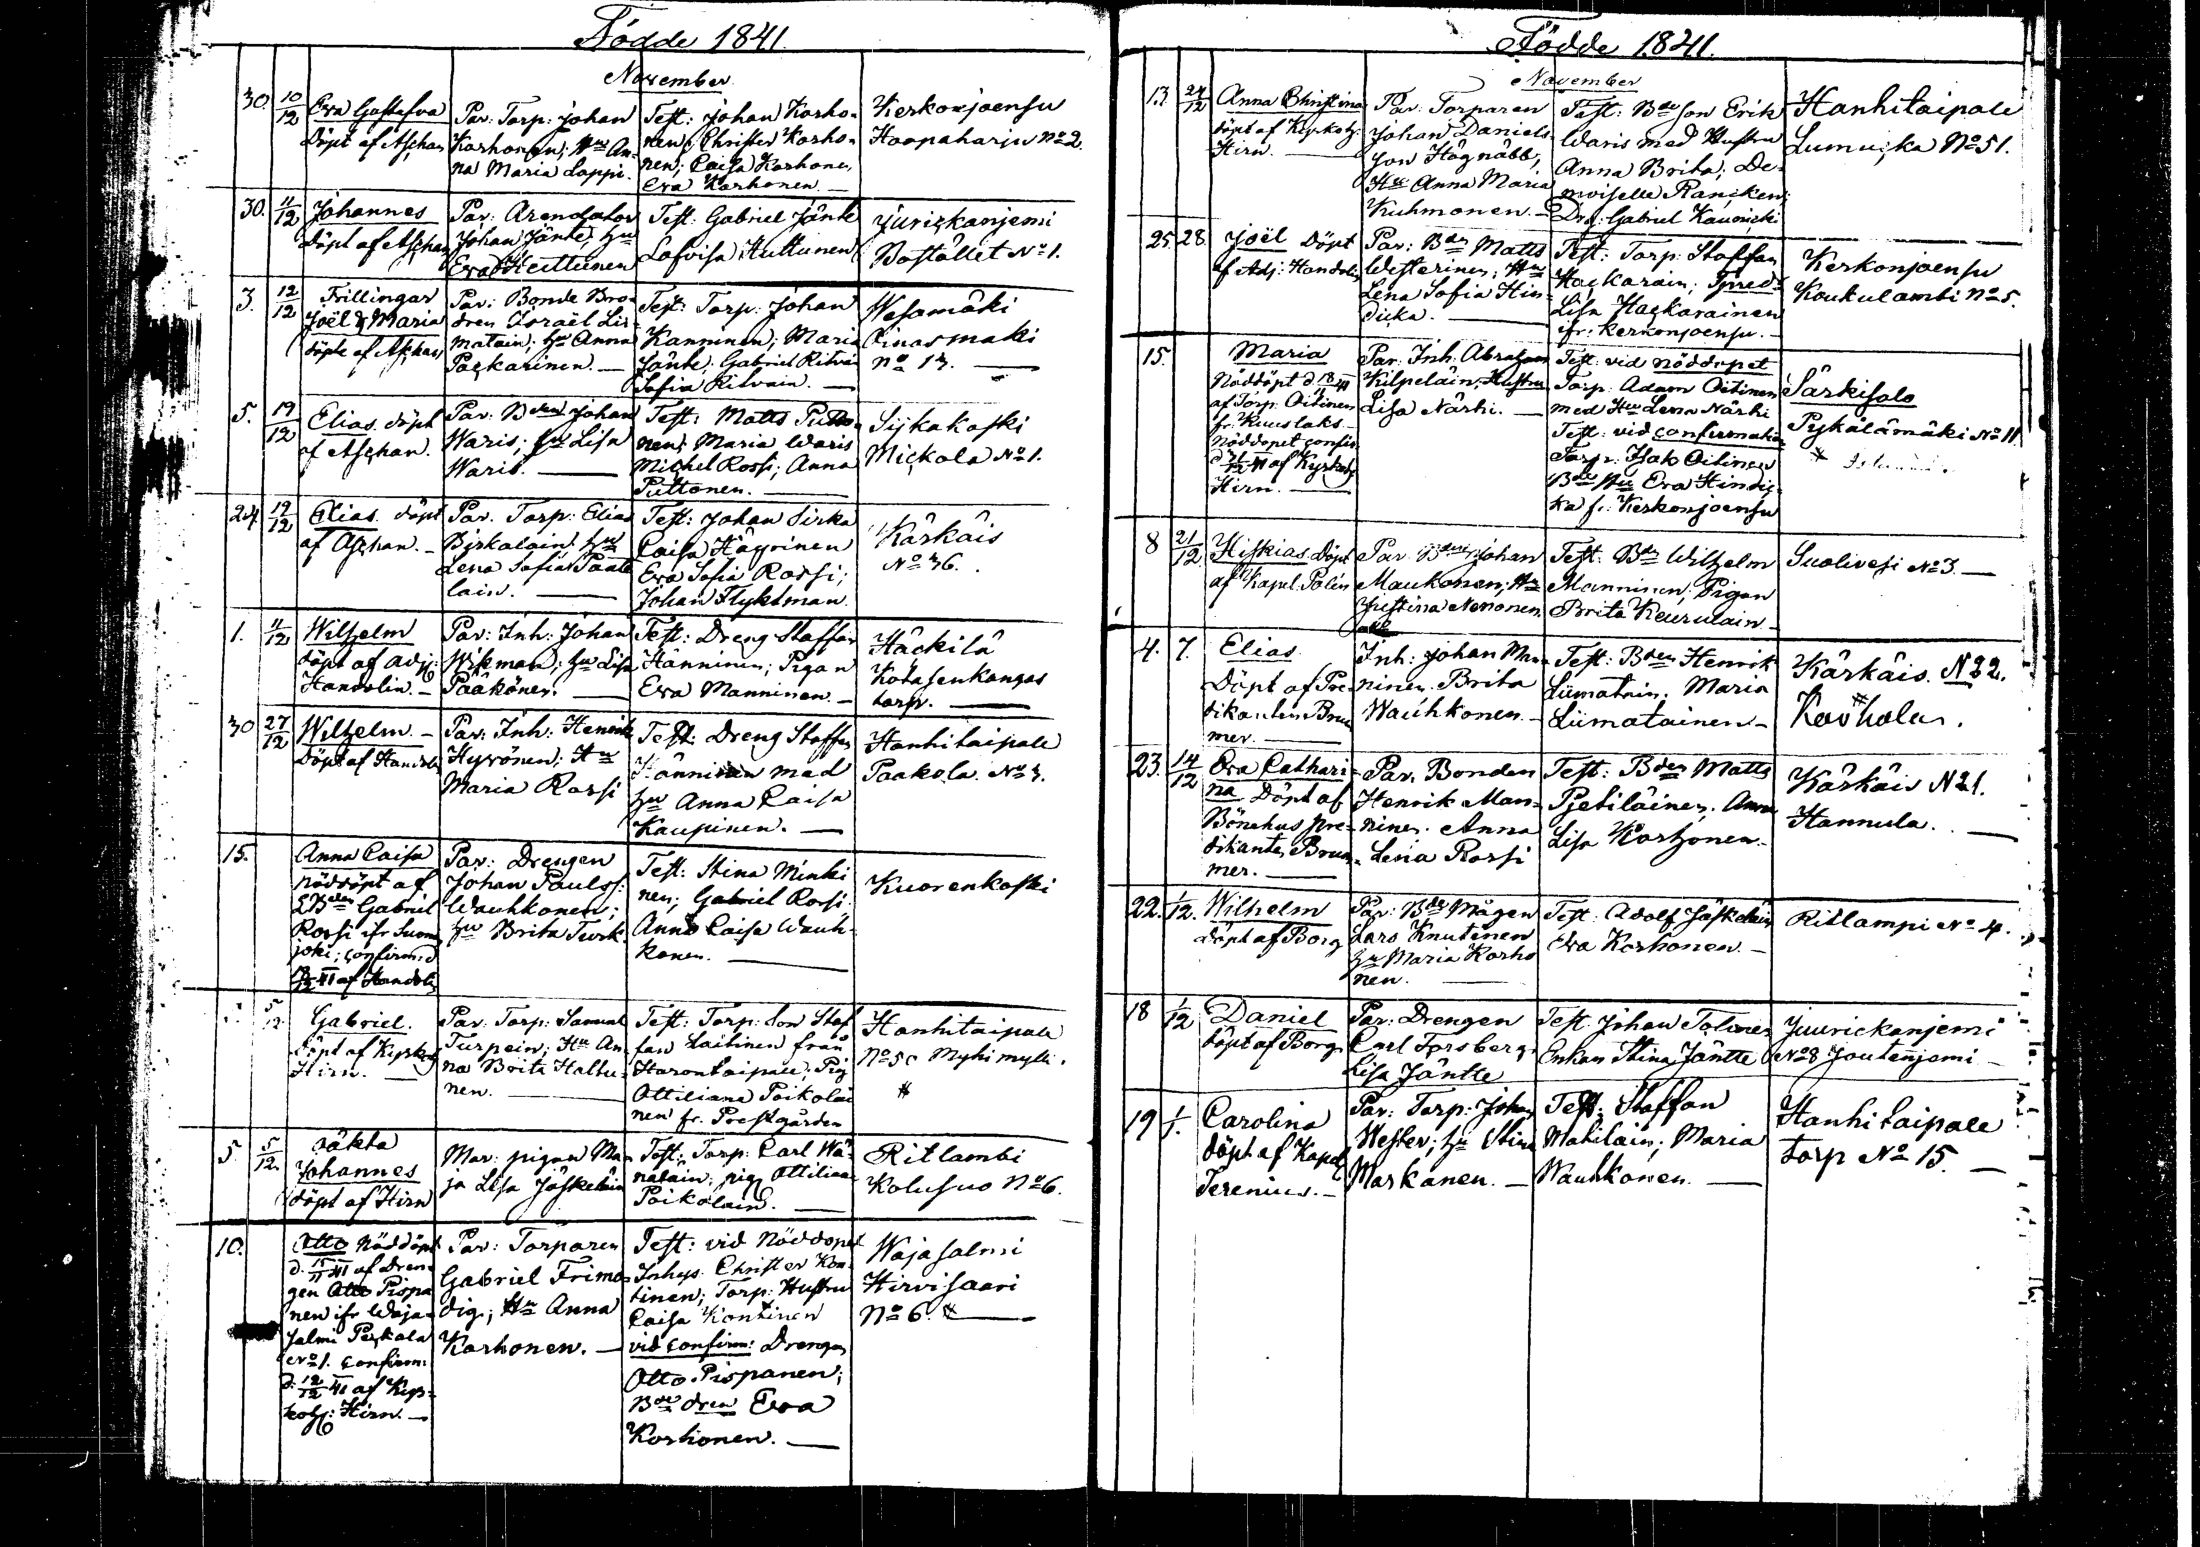 Födde 1841.
November
30. 10/12 Eva Gustafva
döpt af Aschan
Par. Torp: Johan
Korhonen; Hu An-
na Maria Lappi.
Test: Johan Korho-
nen, Christer Korho-
nen; Caisa Korhonen,
Eva Korhonen. —
Kerkonjoensu
Haapaharju No 2.
30. 11/12 Johannes
döpt af Aschan
Par: Arendator
Johan Jänte, hu
Eva Huttunen
Test: Gabriel Jänte
Lovisa Huttunen
Jurickanjemi
Bostället No 1.
3. 12/12 Trillingar
Joël & Maria
döpte af Aschan
Par: Bonde Bro-
dren Israël Lii-
matain; hu Anna
Packarinen. —
Test: Torp: Johan
Kanninen; Maria
Jänte; Gabriel Ritvain
Sofia Ritvain. —
Wesamäki
Oinasmäki
No 13. —
5. 19/12 Elias döpt
af Aschan.
Par: Bden Johan
Waris; hu Lisa
Waris. —
Test: Matts Putto-
nen; Maria Waris
Michel Rossi; Anna
Puttonen. —
Sijkakoski
Mickola No 1.
24 19/12 Elias döpt
af Aschan. —
Par. Torp: Elias
Byskalain; hu
Lena Sofia Paate-
lain. —
Test: Johan Sirka
Caisa Häyrinen
Eva Sofia Rossi;
Johan Flyktman.
Kärkäis
No 36.
1. 11/12 Wilhelm
döpt af Adj:
Handolin. —
Par: Inh: Johan
Wikman; hu Lisa
Pääkönen. —
Test: Dreng Staffan
Hänninen; Pigan
Eva Manninen. —
Häckilä
Kotasenkangas
torp. —
30 27/12 Wilhelm. —
Döpt af Handolin
Par: Inh: Henrik
Hyvönen; Hu
Maria Rossi
Test: Dreng Staffan
Hänninen med
hu Anna Caisa
Kaupinen. —
Hanhitaipale
Paakola No 3.
15. Anna Caisa
Nöddöpt af
Bden Gabriel
Rossi ifr Suon-
joki; confirm: d
af Handolin
Par: Drengen
Johan Paulss:
Wauhkonen;
hu Brita Turk.
Test: Stina Minki-
nen; Gabriel Rossi
Anna Caisa Wauh-
konen. —
Kuorenkoski
5/12. Gabriel.
döpt af Kyrkohj
Hirn. —
Par: Torp: Samuel
Turpein; Hu An-
na Brita Haltu-
nen. —
Test: Torp: Son Staf-
fan Laitinen från
Harontaipale; Pig
Ottiliana Poikolai-
nen fr. Prestgården
Hanhitaipale
No 50 Myhimylli.
*
5 5/12. oäkta
Johannes
döpt af Hirn
Mar: pigan Ma-
ja Lisa Jäskeläin
Test: Torp: Carl Wä-
natain; pig Ottiliana
Poikolain. —
Ritlambi
Kolusuo No 6.
10. Otto Nöddöpt
d. 15/11 41 af Dren-
gen Otto Pispa-
nen ifr Waja-
salmi Peckala
No 1. confirm:
d. 12/12 41 af Kyr-
kohj: Hirn. —
Par: Torparen
Gabriel Frimo-
dig; Hu Anna
Korhonen. —
Test: vid Nöddopet
Inhys. Christer Kon-
tinen; Torp: Hustru
Caisa Kontinen
vid confirm: Drengen
Otto Pispanen;
Bdedren Eva
Korhonen. —
Wajasalmi
Hirvisaari
No 6. * —
Födde 1841.
November
13. 24/12 Anna Christina
döpt af Kyrkohj
Hirn. —
Par: Torparen
Johan Daniels-
son Högnäbb;
Hu Anna Maria
Kuhmonen. —
Test: Bdeson Erik
Waris med Hustru
Anna Brita; De-
moiselle Rancken;
Drg: Gabriel
Hanhitaipale
Lumucka No 51.
25. 28. Joël döpt
af Adj: Handolin
Par: Bden Matts
Westerinen; Hu
Lena Sofia Hin-
dicka. —
Test: Torp: Staffan
Hackarain;
Lisa Hackarainen
ifr: Kerkonjoensu. —
Kerkonjoensu
Koukulambi No 5.
15. Maria
Nöddöpt d. 18/11 41
af Torp: Oitinen
fr. Kuuslaks
Nöddopet confir.
af Kyrkohj
Hirn. —
Par. Inh: Abraham
Kilpeläin, Hustru
Lisa Närhi. —
Test: vid nöddopet
Torp: Adam Oitinen
med Hu Lena Närhi
Test: vid confirmation
Torp: Isak Oitinen
Bde Hu Eva Hindic-
ka fr: Kerkonjoensu
Särkisalo
Pyskälämäki No 11
*
8 21/12 Hiskias döpt
af Kapel. Polén
Par: Bden Johan
Maukonen; Hu
Justina Nenonen
Test: Bdn Wilhelm
Manninen; Pigan
Brita Keurulain —
Suolivesi No 3. —
4. 7. Elias
Döpt af Pre-
dikanten Brum-
mer. —
Inh: Johan Man-
ninen. Brita
Wauhkonen. —
Test: Bden Henrik
Liimatain. Maria
Liimatainen —
Kärkäis. N 22.
Kovhola.
23. 14/12 Eva Cathari-
na Döpt af
Bönehus pre-
dikanten Brum-
mer. —
Par. Bonden
Henrik Man-
ninen. Anna
Lena Rossi
Test: Bden Matts
Pjetiläinen. Anna
Lisa Korhonen —
Kärkäis N 21.
Hannula. —
22. 1/12. Wilhelm
Döpt af Borg
Par: Bde Mågen
Lars Knutinen
hu Maria Korho-
nen. —
Test: Adolf Jäskeläin
Eva Korhonen. —
Ritlampi No 4.
18 1/12 Daniel
döpt af Borg
Par: Drengen
Carl Forsberg
Lisa Jäntte
Test: Johan Tolonen
Enkan Stina Jäntte
Juurickanjemi
No 8 Joutenjami —
19 1/1. Carolina
döpt af Kapel
Terenius. —
Par: Torp: Johan
Wester; hu Stina
Markanen. —
Test: Staffan
Matilain; Maria
Wauhkonen. —
Hanhitaipale
torp No 15. —